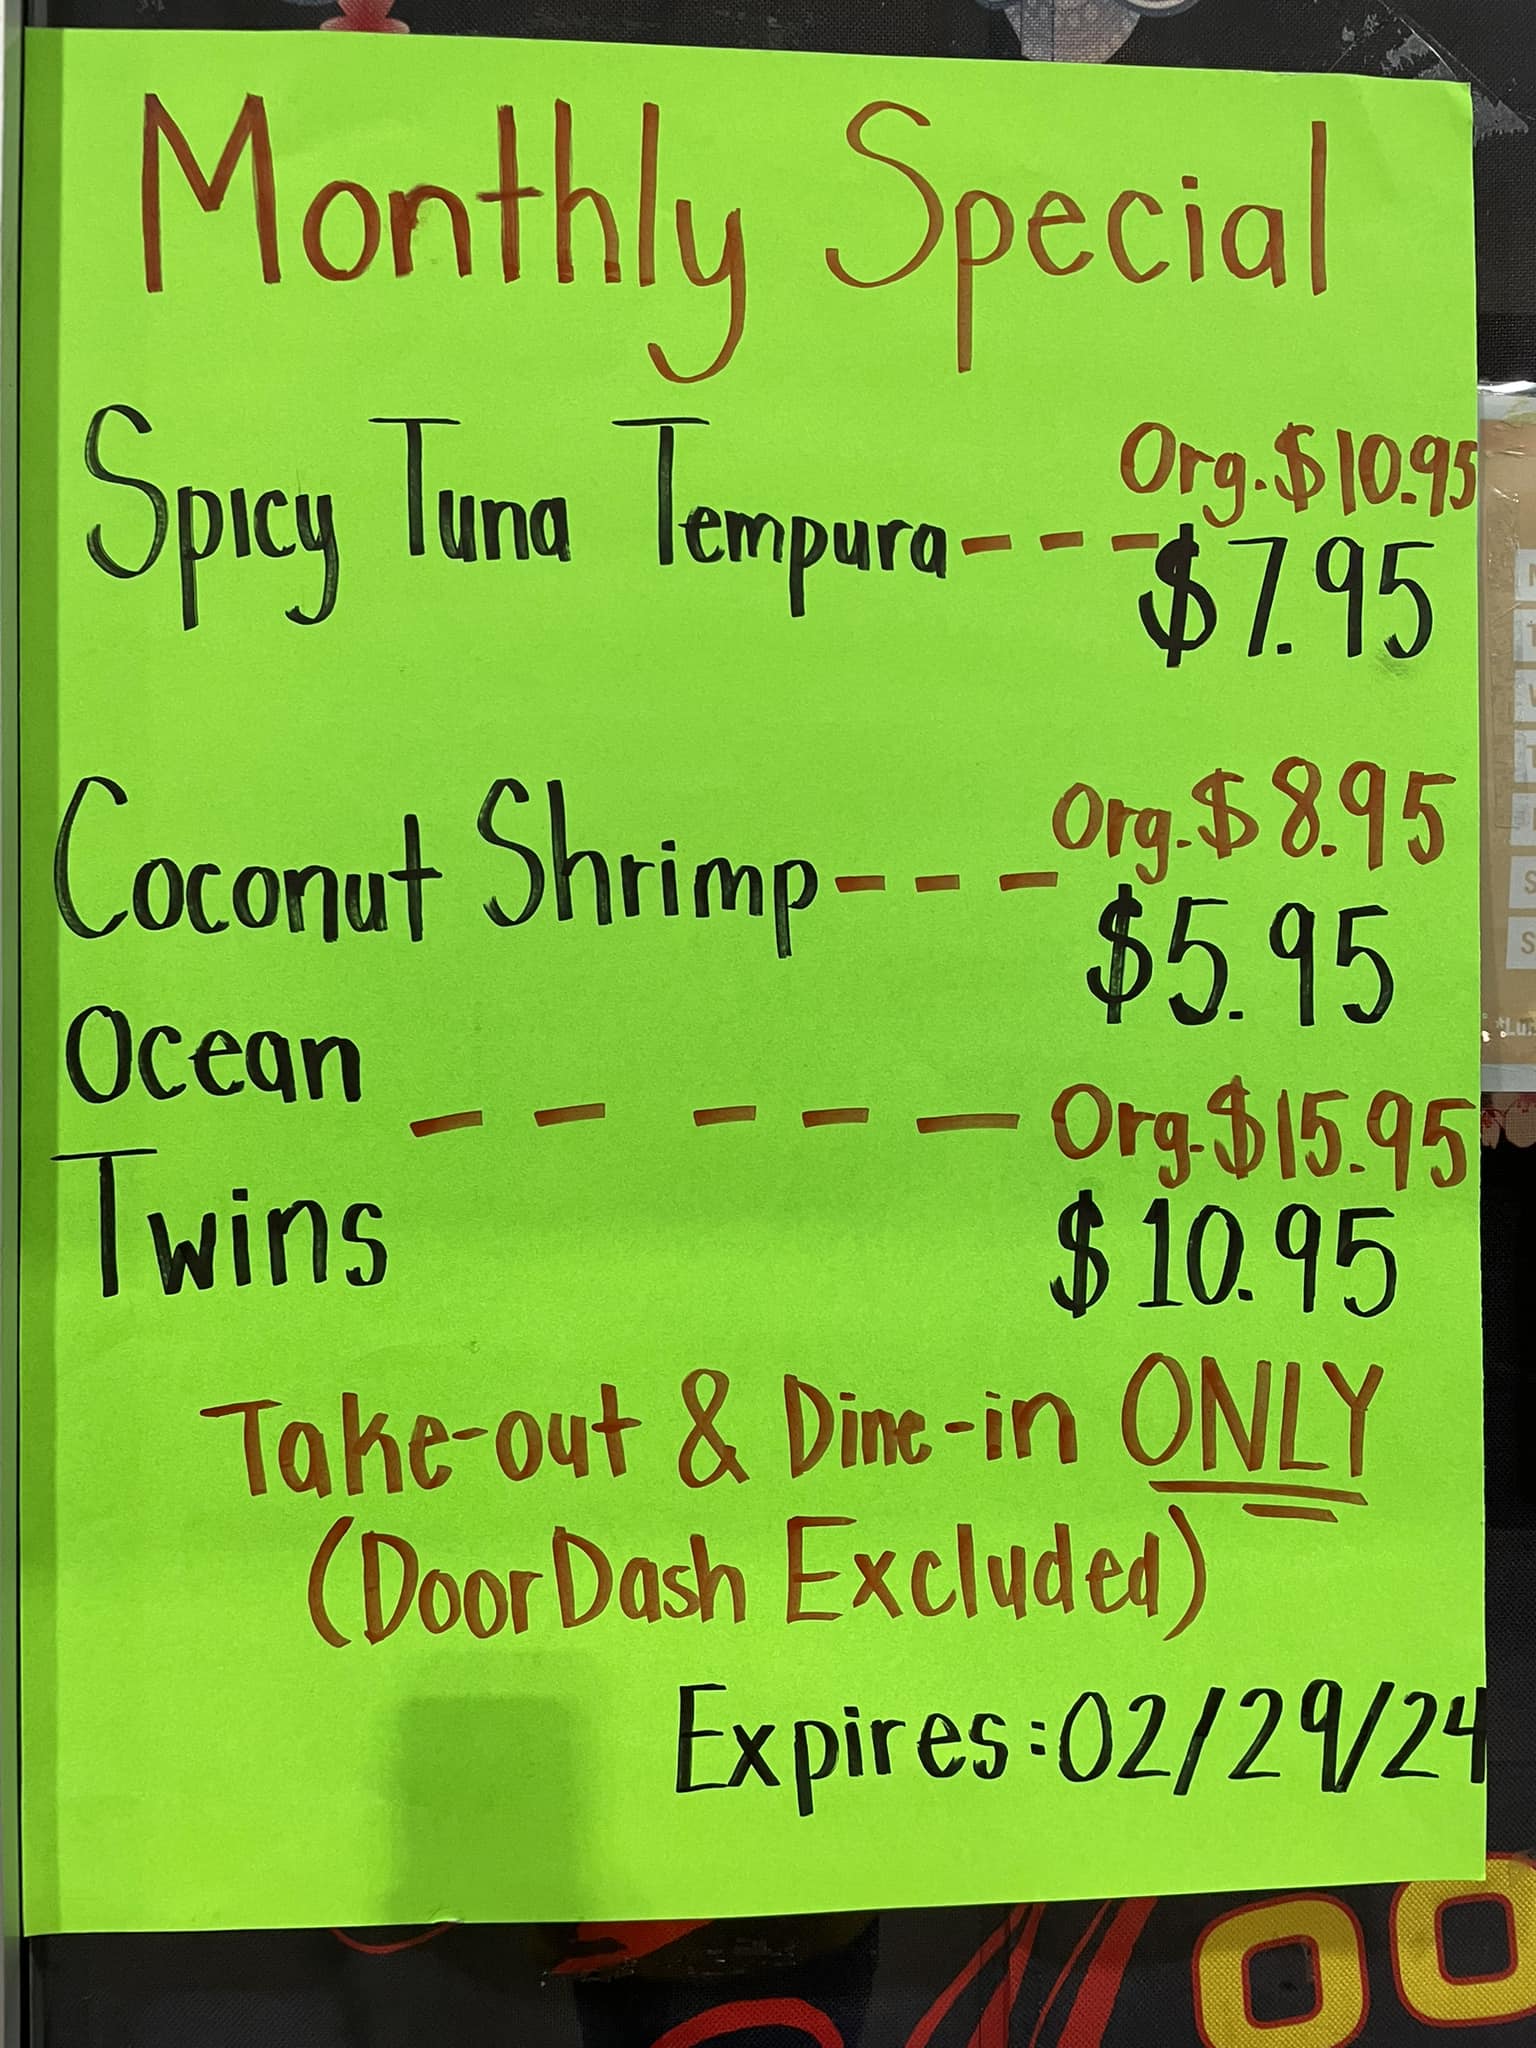 Monthly Special
Org. $10.95
Spicy Tuna Tempura --- $7.95
Org. $8.95
Coconut Shrimp ---
$5.95
Ocean
Twins
----- Org. $15.95
$10.95
Take-out & Dine-in ONLY
(DoorDash Excluded)
Expires: 02/29/24